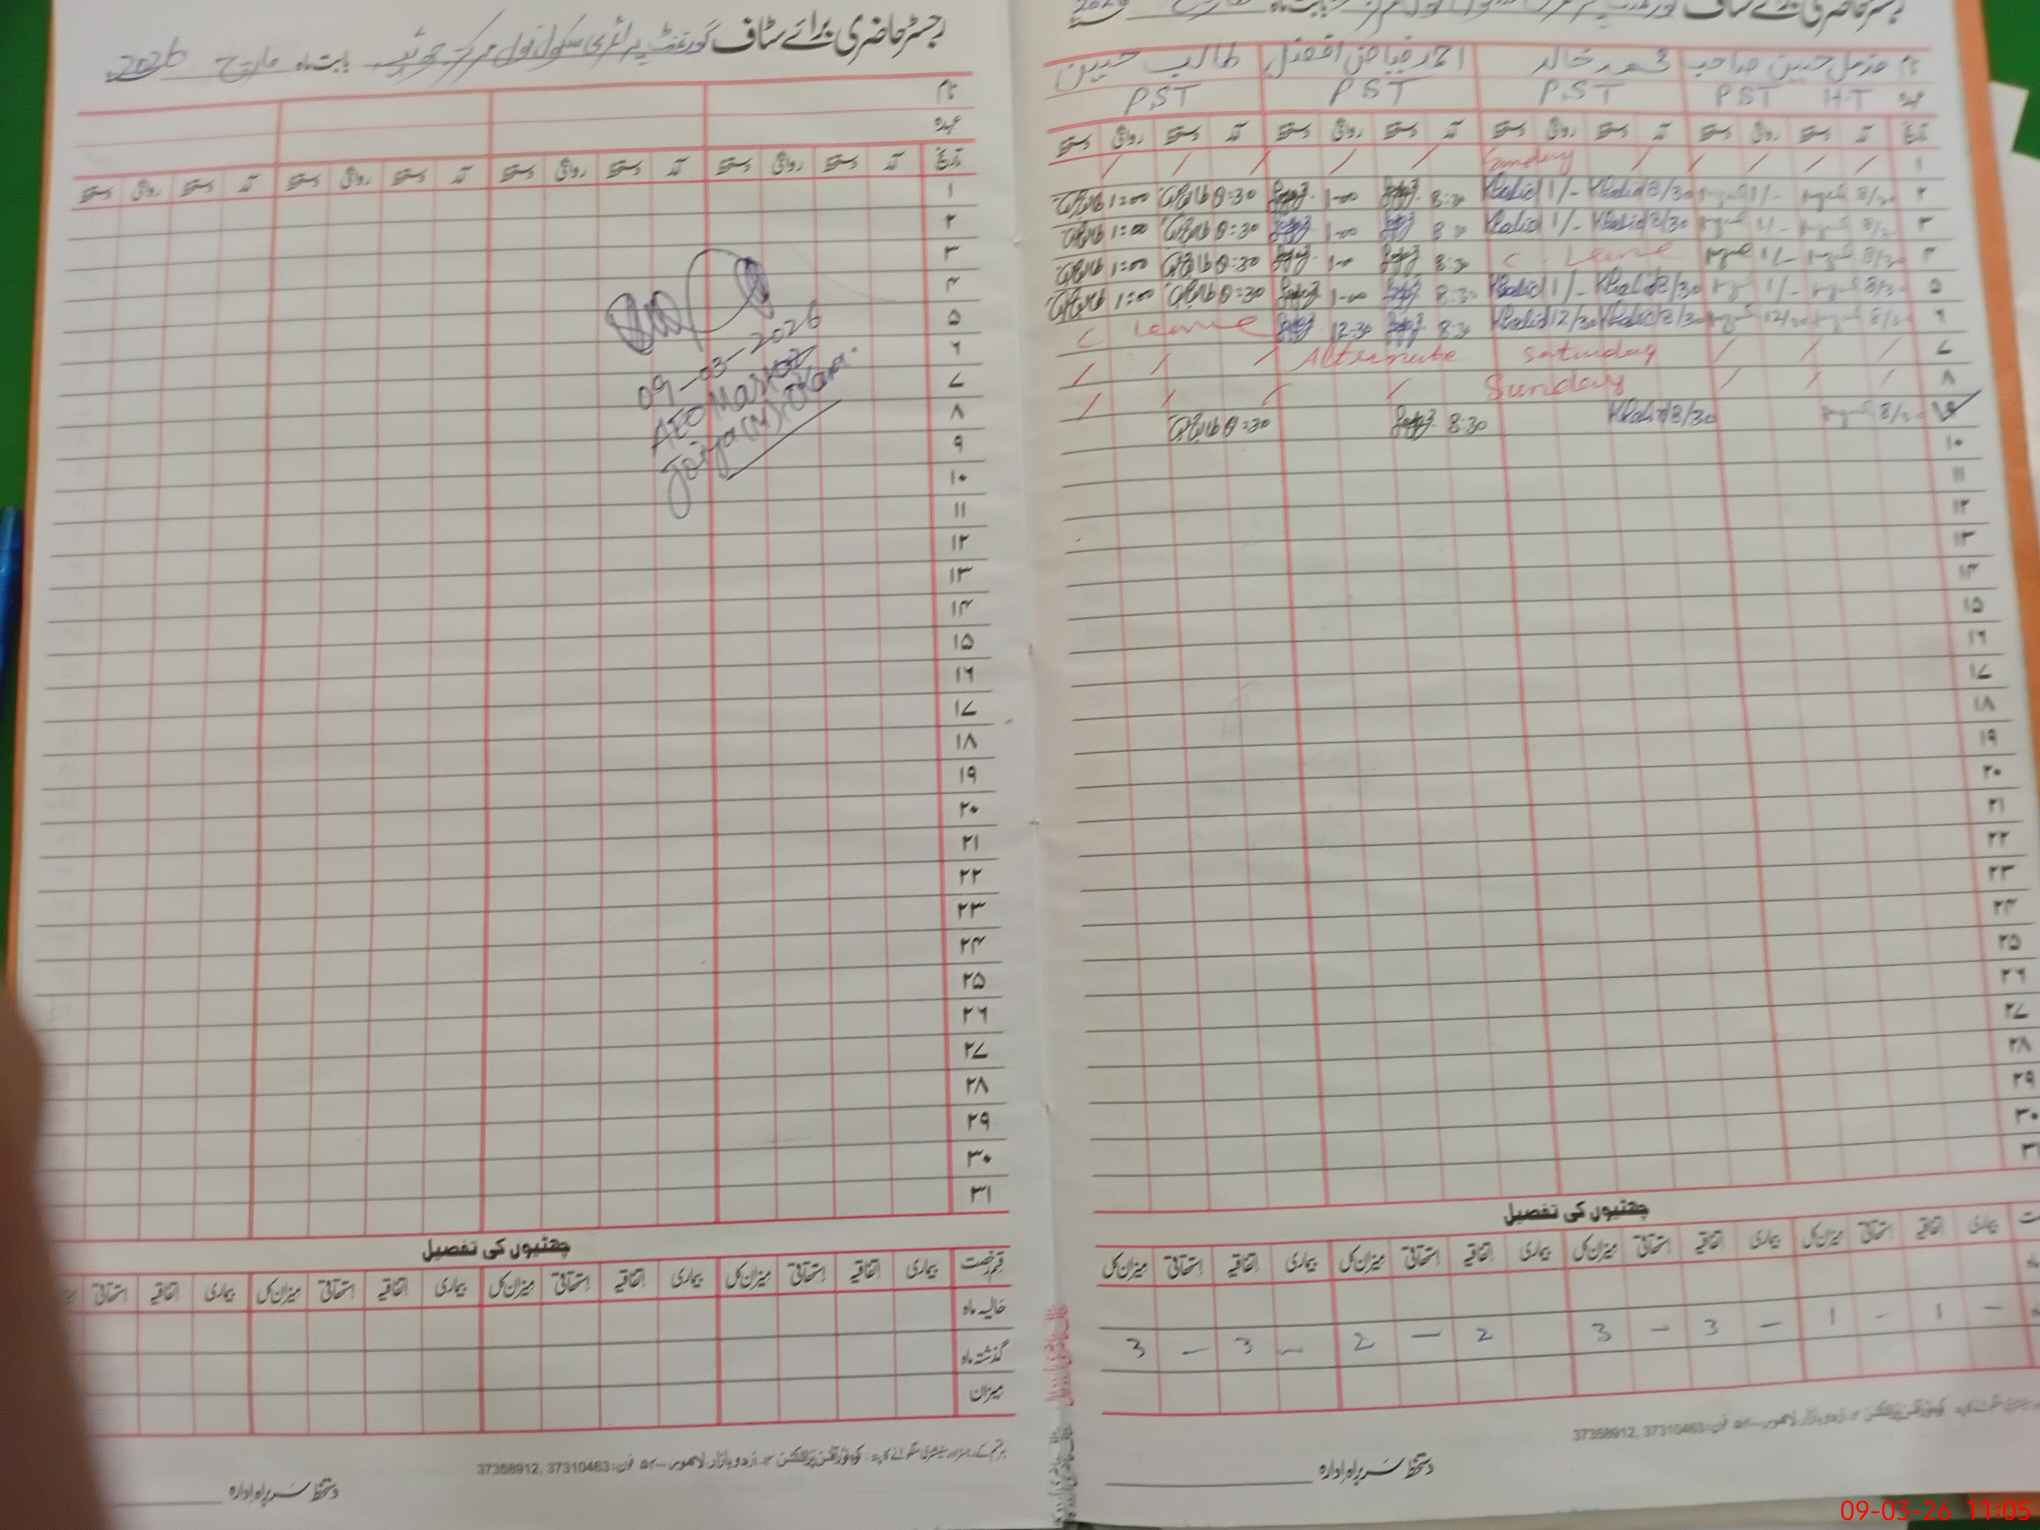 رجسٹر حاضری برائے سٹاف گورنمنٹ پرائمری سکول بابت ماہ مارچ 2026
نام
عہدہ
تاریخ آمد دستخط روانگی دستخط آمد دستخط روانگی دستخط آمد دستخط روانگی دستخط آمد دستخط روانگی دستخط
۱
۲
۳
۴
۵
۶
۷
۸
۹
۱۰
۱۱
۱۲
۱۳
۱۴
۱۵
۱۶
۱۷
۱۸
۱۹
۲۰
۲۱
۲۲
۲۳
۲۴
۲۵
۲۶
۲۷
۲۸
۲۹
۳۰
۳۱
09-03-2026
AEO Markaz
Joiya (M) Okara.
چھٹیوں کی تفصیل
قسم رخصت بیماری اتفاقیہ استحقاقی میزان کل بیماری اتفاقیہ استحقاقی میزان کل بیماری اتفاقیہ استحقاقی میزان کل بیماری اتفاقیہ استحقاقی
حالیہ ماہ
گذشتہ ماہ
میزان
اردو بازار لاہور فون: 37310463, 37368912
دستخط سربراہ ادارہ
رجسٹر حاضری برائے سٹاف 2026
نام مزمل حسین صاحب محمد خالد احمد فیاض افضل طالب حسین
عہدہ H.T PST PST PST PST
تاریخ آمد دستخط روانگی دستخط آمد دستخط روانگی دستخط آمد دستخط روانگی دستخط آمد دستخط روانگی دستخط
۱ / / / / / Sunday / / / / /
۲ 8/30 1/- Khalid 8/30 Khalid 1/- 8:30 1-00 8:30 1:00
۳ 1/- Khalid 8/30 Khalid 1/- 8:30 1-00 8:30 1:00
۴ 8/30 1/- C. Leave 8:30 1-00 8:30 1:00
۵ 8/30 1/- Khalid 8/30 Khalid 1/- 8:30 1-00 8:30 1:00
۶ 8/30 12/30 Khalid 8/30 Khalid 12/30 8:30 12:30 C Leave
۷ / / / Alternate Saturday / / /
۸ / / / Sunday / / / /
۹ 8/30 Khalid 8/30 8:30 8:30
۱۰
۱۱
۱۲
۱۳
۱۴
۱۵
۱۶
۱۷
۱۸
۱۹
۲۰
۲۱
۲۲
۲۳
۲۴
۲۵
۲۶
۲۷
۲۸
۲۹
۳۰
چھٹیوں کی تفصیل
بیماری اتفاقیہ استحقاقی میزان کل بیماری اتفاقیہ استحقاقی میزان کل بیماری اتفاقیہ استحقاقی میزان کل بیماری اتفاقیہ استحقاقی میزان کل
— 1 - 1 — 3 — 3 2 — 2 — 3 — 3
اردو بازار لاہور فون: 37310463, 37368912
دستخط سربراہ ادارہ
09-03-26 11:05